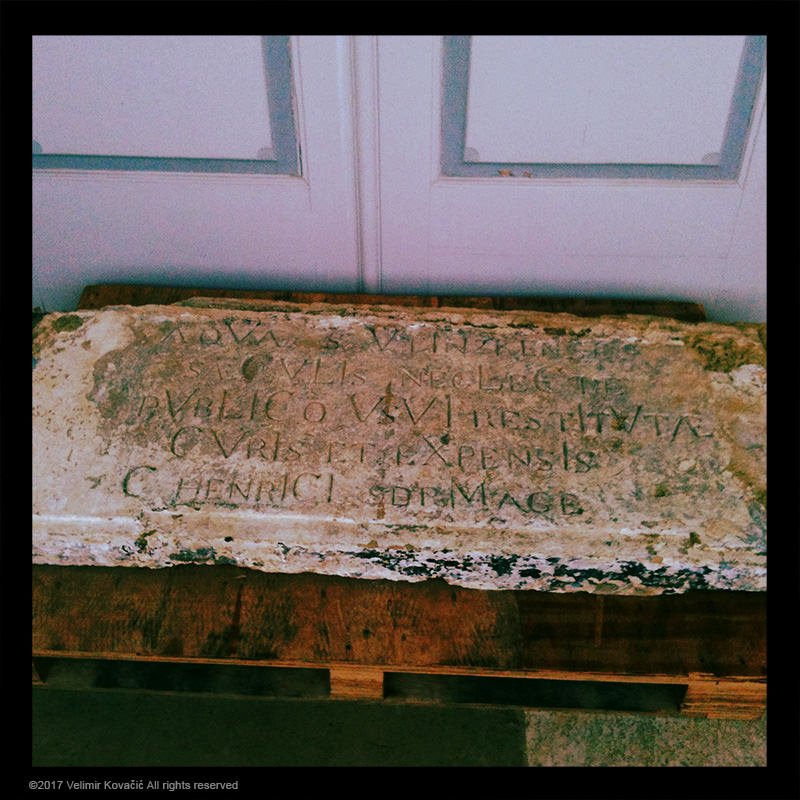 AQVÆ
SÆCVLIS NEGLECTÆ
PVBLICO VSVI RESTITVTÆ
CVRIS ET EXPENSIS
C HENRICI
©2017 Velimir Kovačić All rights reserved